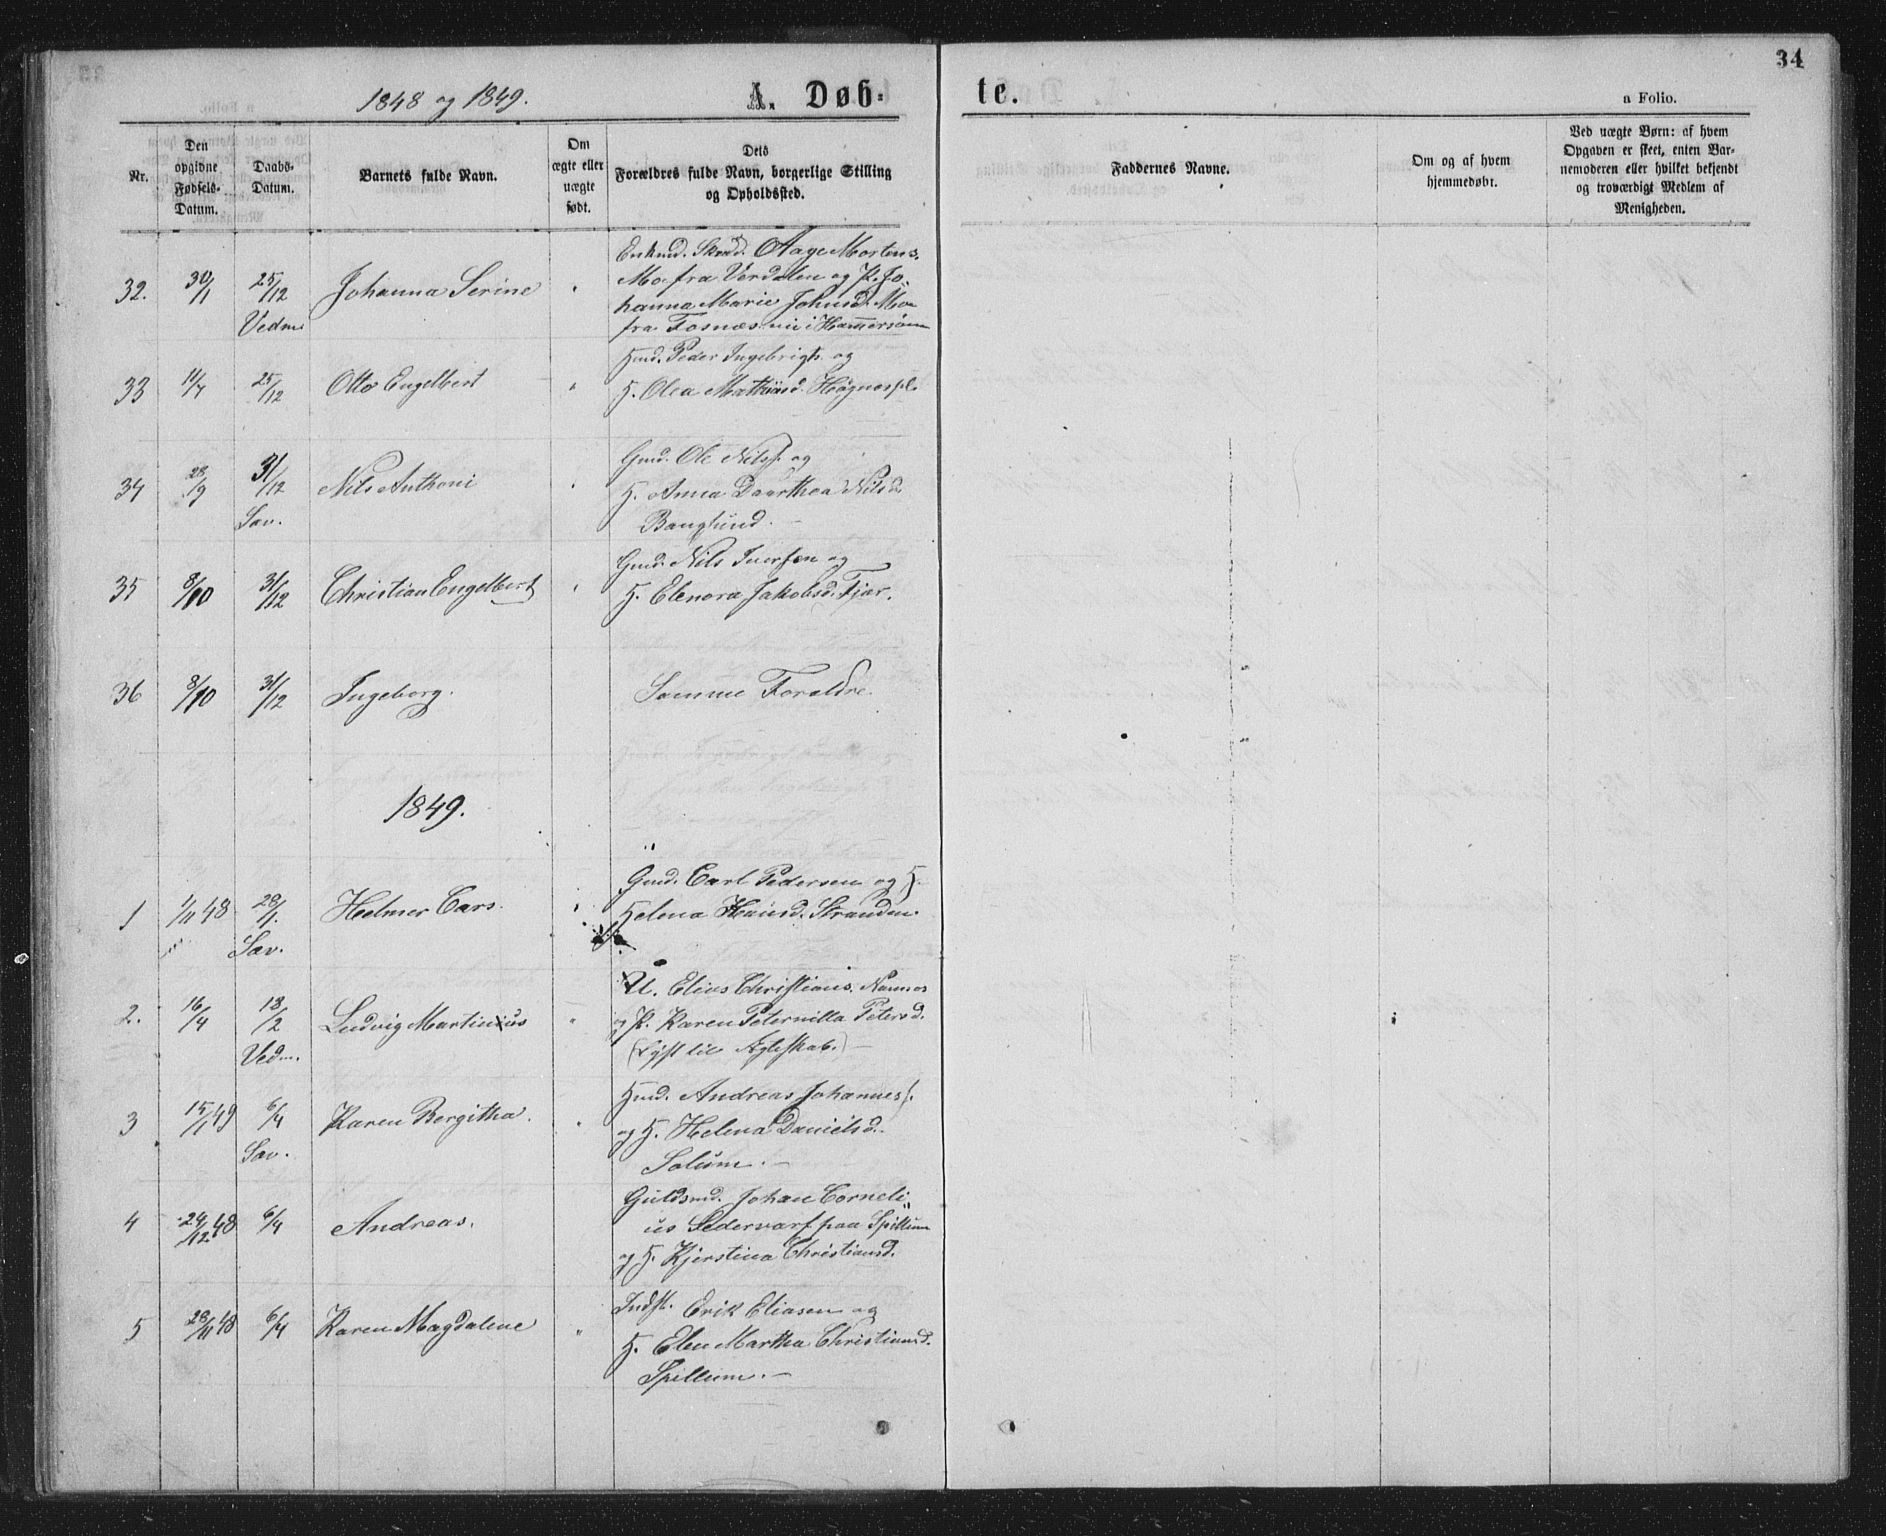 34
1848 og 1849.
A. Døb-
te.
a Folio.
Nr.
Den
opgivne
Fødsels-
Datum.
Daabs-
Datum.
Barnets fulde Navn.
Om
ægte eller
uægte
født.
Dets
Forældres fulde Navn, borgerlige Stilling
og Opholdssted.
Faddernes Navne.
Om og af hvem
hjemmedøbt.
Ved uægte Børn: af hvem
Opgaven er skeet, enten Bar-
nemoderen eller hvilket bekjendt
og troværdigt Medlem af
Menigheden.
32. 30/1 25/12 Johanna Serine
Vedm.
Aage Mortens.
Mo fra Verdalen og P. Jo-
hanna Marie Johnsd. Mo
fra Fosnæs
33 11/7 25/12 Otto Engelbert
Hmd. Peder Ingebrigts. og
H. Olea Mathiasd. Høgnæspl.
34 28/9 31/12 Nils Anthoni
Sav.
Gmd. Ole Nilss. og
H. Anna Daarthea Nilsd.
Banglund.
35 8/10 31/12 Christian Engelbert
Gmd. Nils Iversen og
H. Elenora Jakobsd. Fjær.
36 8/10 31/12 Ingeborg.
Samme Forældre.
1849.
1 1/11 48 28/1. Helmer Cars.
Sav.
Gmd. Carl Pedersen og H.
Helena Hansd. Stranden.
2. 16/4 18/2 Ludvig Martinius
Vedm.
U. Elias Christians. Namnos
og P. Karen Peternilla Petersd.
(Lyst til Ægteskab.)
3 15/1 49 6/4 Karen Bergitha.
Sav.
Hmd. Andreas Johanness.
og H. Helena Danielsd.
Solum.
4 29/12 48 6/4 Andreas.
Guldsmd. Johan Corneli-
us Sedervarf paa Spillum
og H. Kjerstina Christiansd.
5 28/11 48 6/4 Karen Magdalene
Indst. Erik Eliasen og
H. Elen Martha Christiansd.
Spillum.